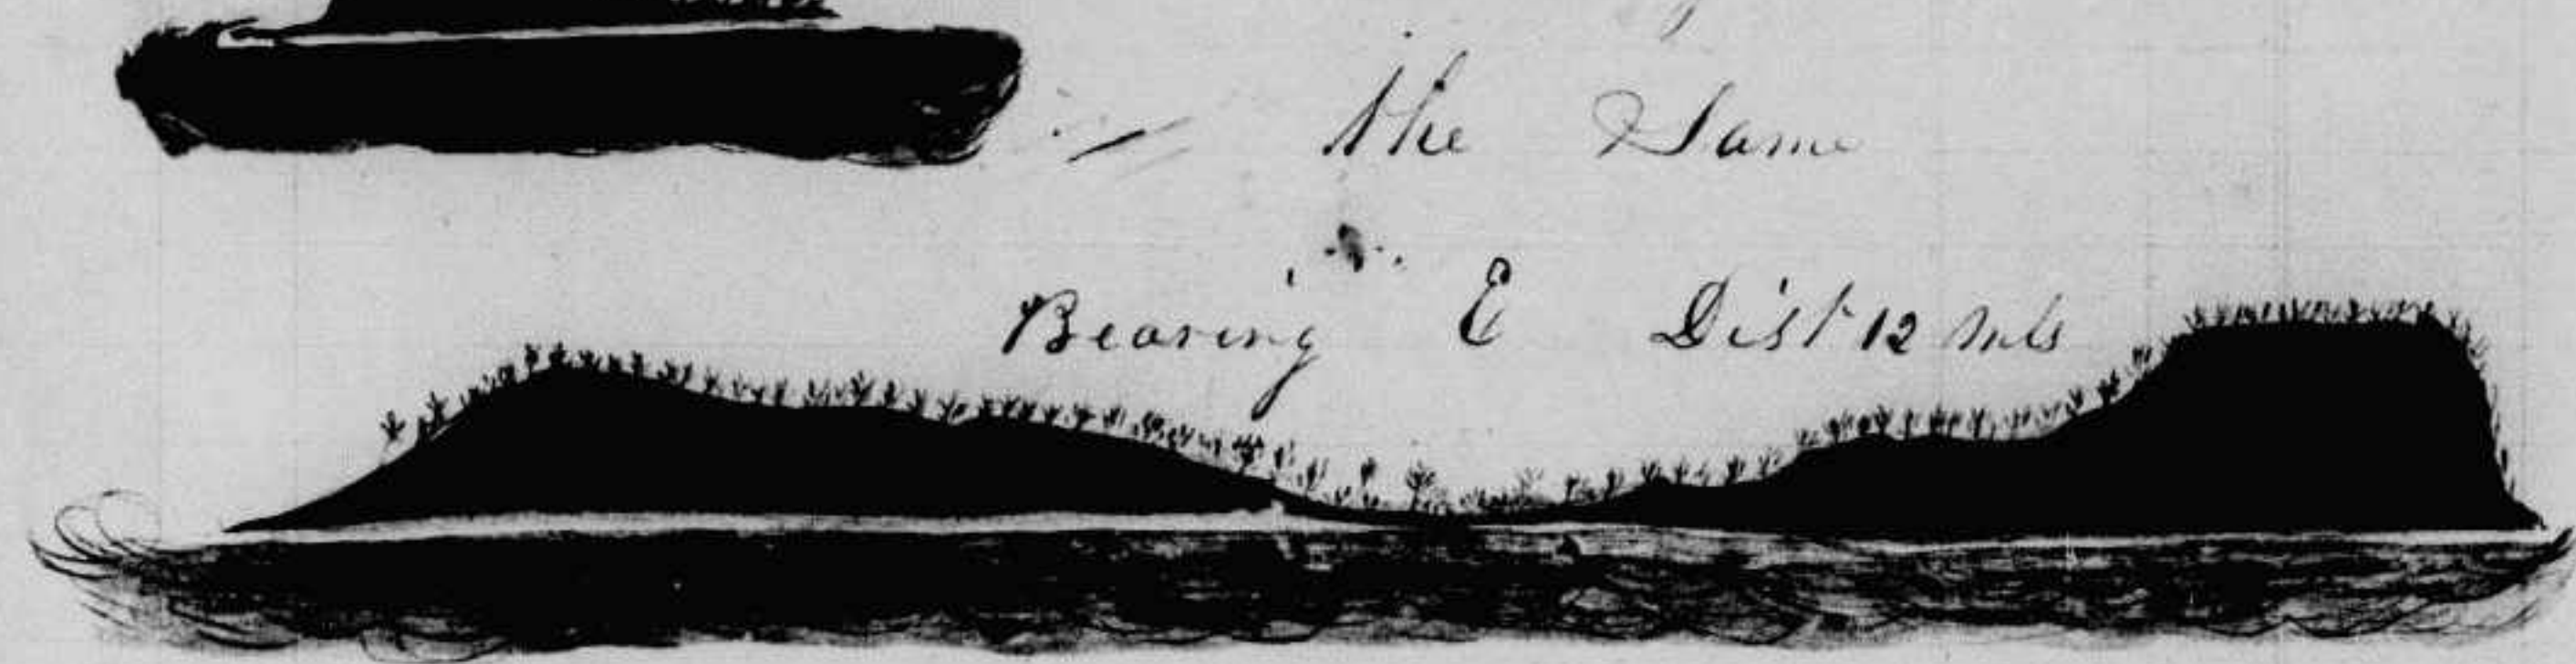 the Same
Bearing E Dist 12 mls